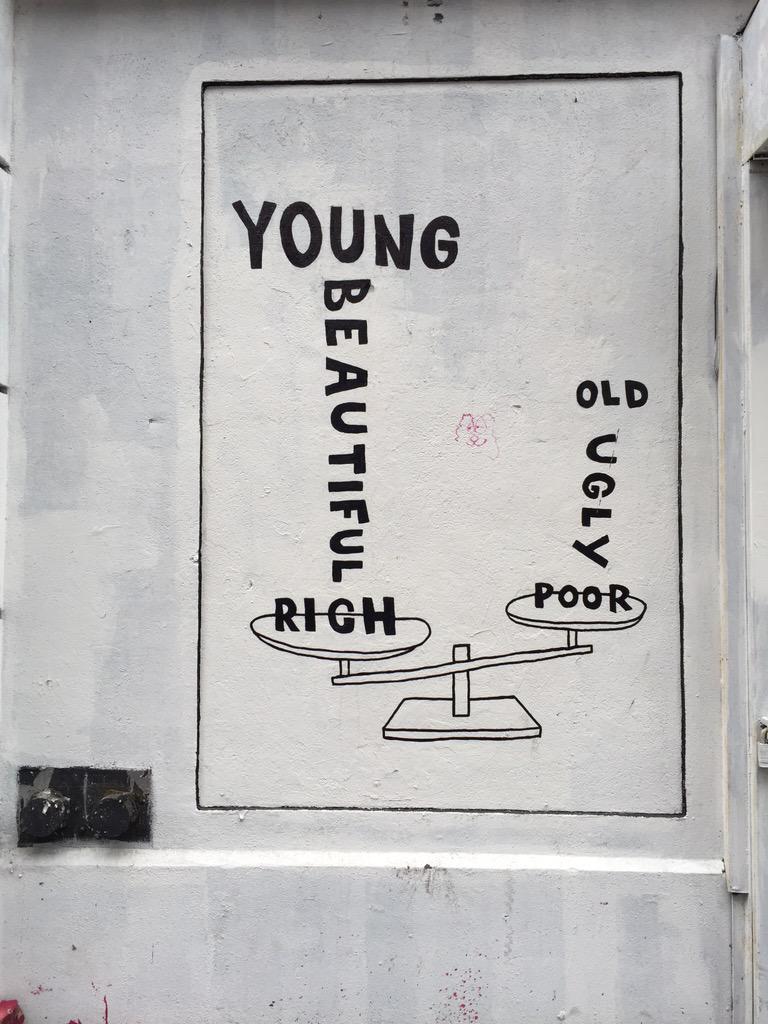 YOUNG
BEAUTIFUL
RICH
OLD
UGLY
POOR